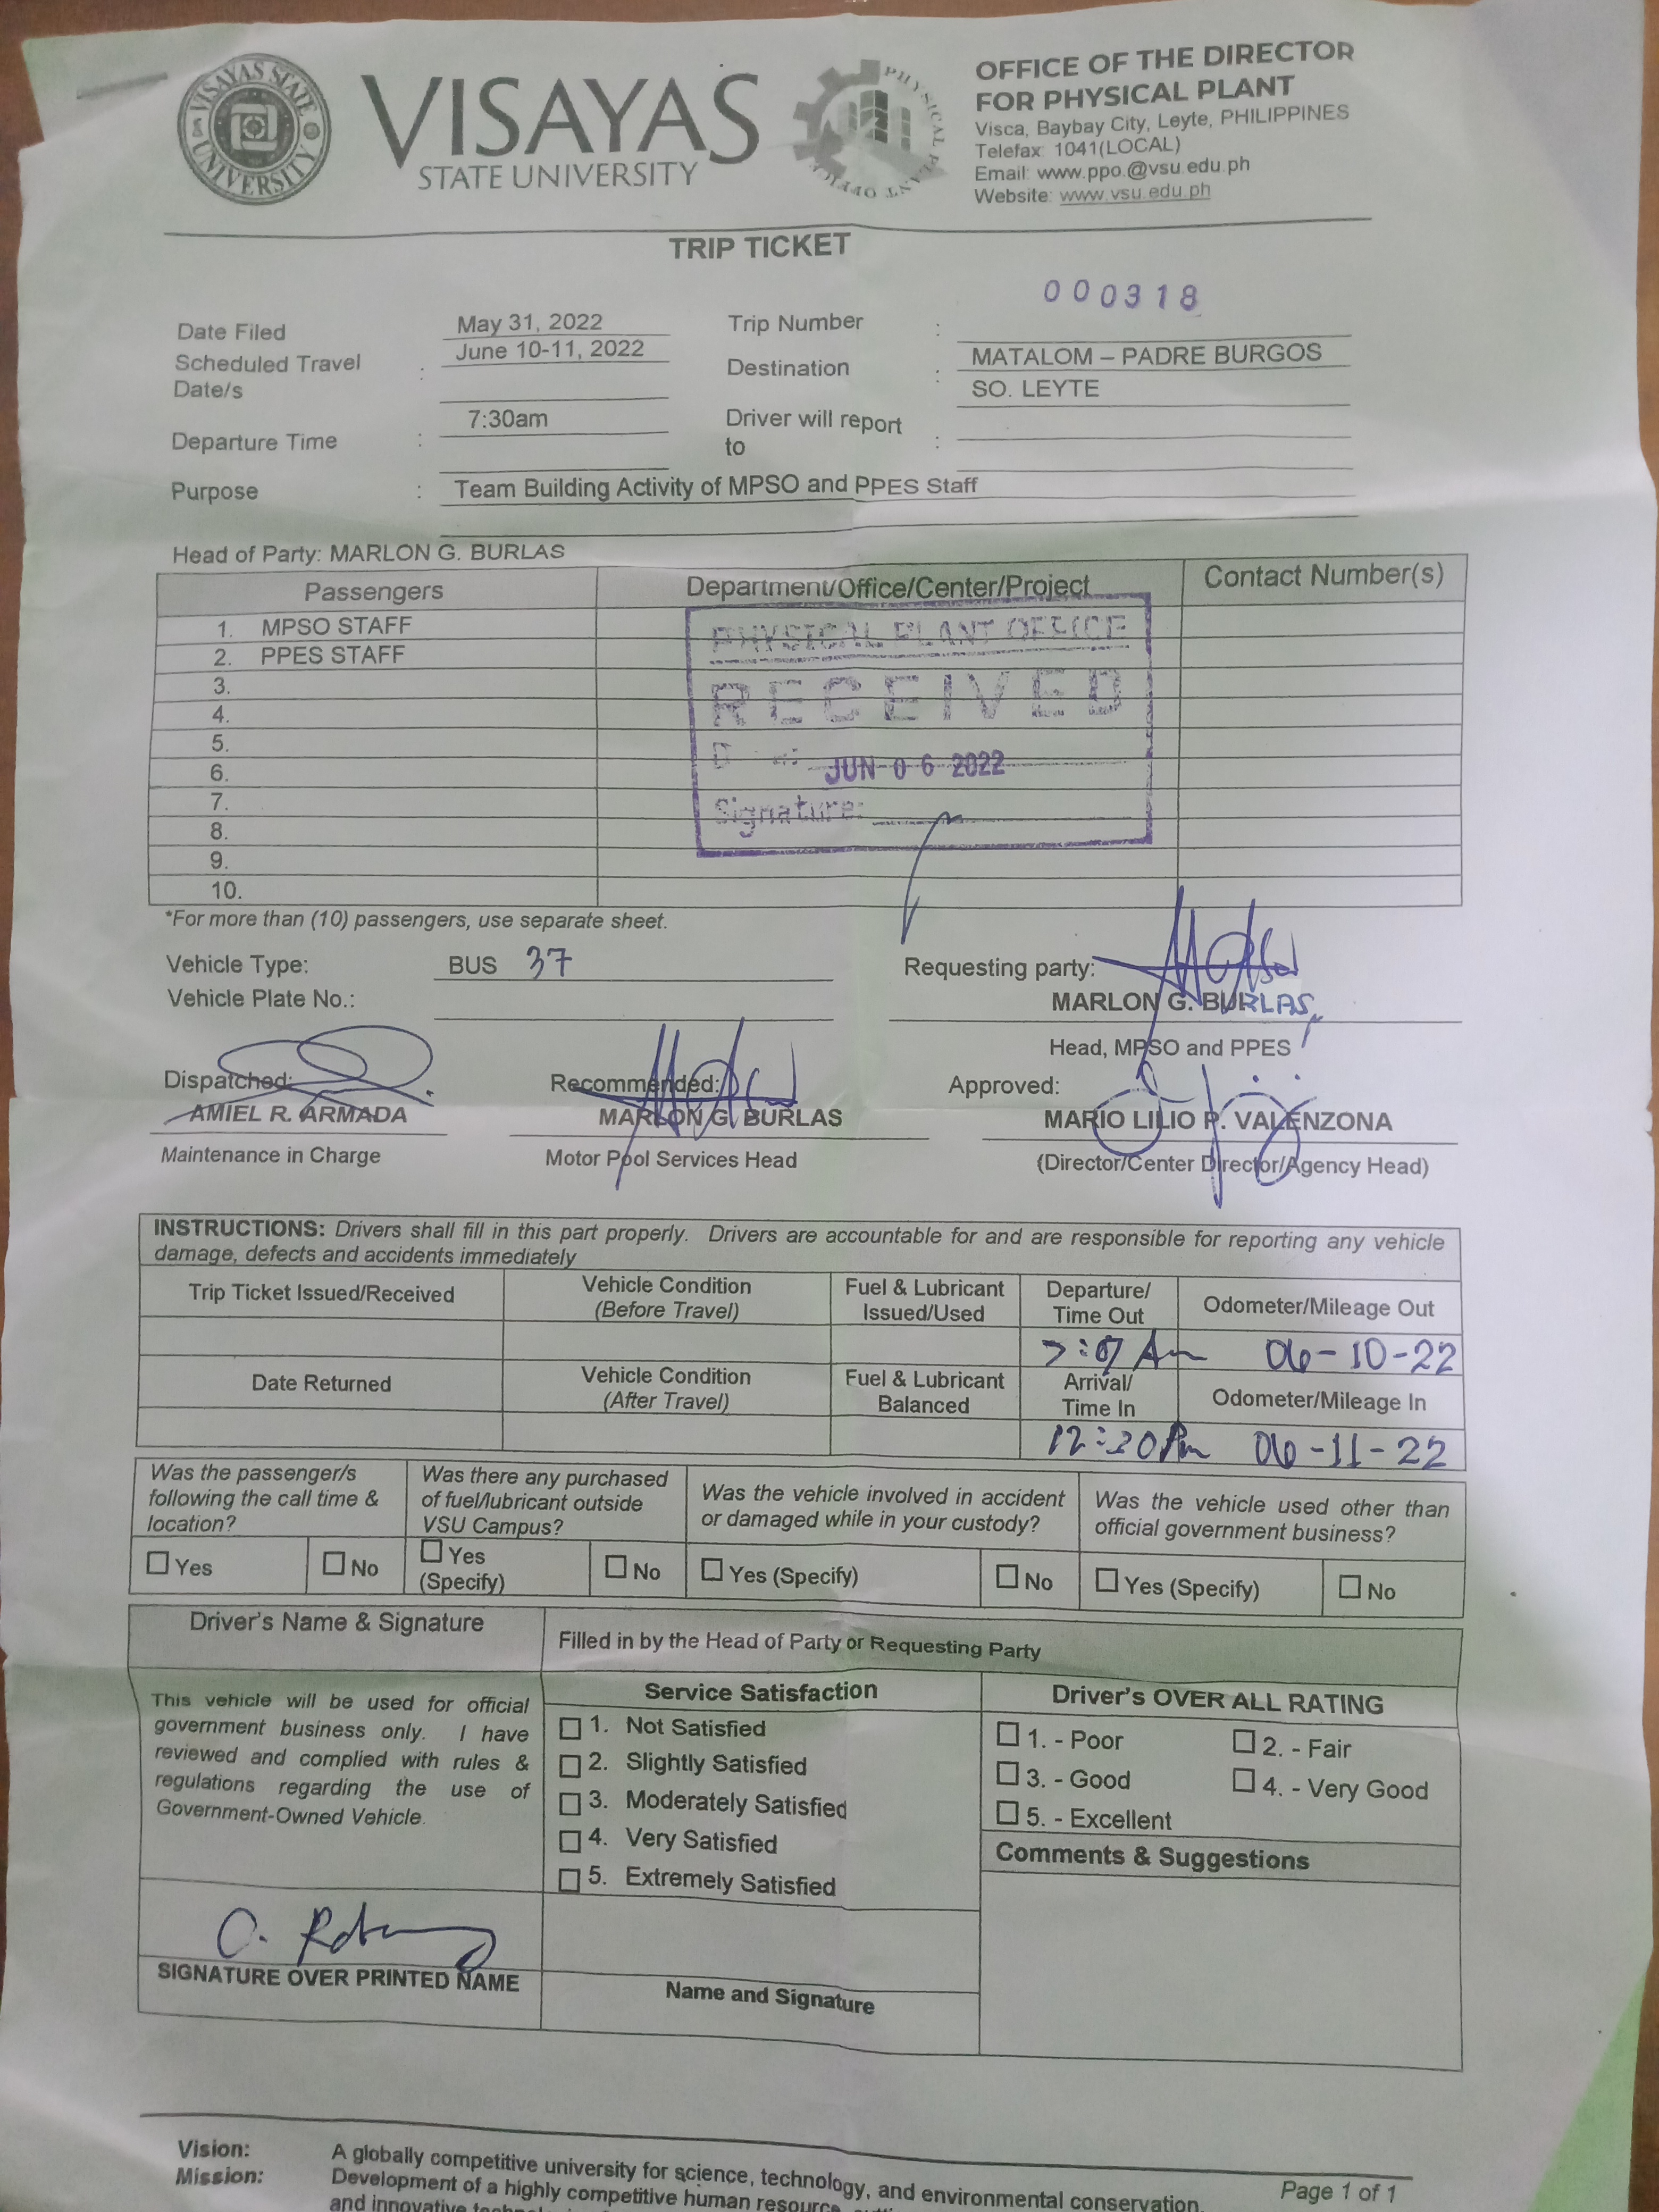 VISAYAS STATE UNIVERSITY
VISAYAS
STATE UNIVERSITY
PHYSICAL PLANT OFFICE
OFFICE OF THE DIRECTOR
FOR PHYSICAL PLANT
Visca, Baybay City, Leyte, PHILIPPINES
Telefax: 1041(LOCAL)
Email: www.ppo.@vsu.edu.ph
Website: www.vsu.edu.ph
TRIP TICKET
000318
Date Filed May 31, 2022 Trip Number :
Scheduled Travel Date/s : June 10-11, 2022 Destination : MATALOM – PADRE BURGOS
SO. LEYTE
Departure Time : 7:30am Driver will report to :
Purpose : Team Building Activity of MPSO and PPES Staff
Head of Party: MARLON G. BURLAS
Passengers Department/Office/Center/Project Contact Number(s)
1. MPSO STAFF
2. PPES STAFF
3.
4.
5.
6.
7.
8.
9.
10.
PHYSICAL PLANT OFFICE
RECEIVED
JUN 06 2022
Signature:
*For more than (10) passengers, use separate sheet.
Vehicle Type: BUS 37 Requesting party:
Vehicle Plate No.: MARLON G. BURLAS
Head, MPSO and PPES
Dispatched: Recommended: Approved:
AMIEL R. ARMADA MARLON G. BURLAS MARIO LILIO P. VALENZONA
Maintenance in Charge Motor Pool Services Head (Director/Center Director/Agency Head)
INSTRUCTIONS: Drivers shall fill in this part properly. Drivers are accountable for and are responsible for reporting any vehicle
damage, defects and accidents immediately
Trip Ticket Issued/Received Vehicle Condition (Before Travel) Fuel & Lubricant Issued/Used Departure/ Time Out Odometer/Mileage Out
7:07 Am 06-10-22
Date Returned Vehicle Condition (After Travel) Fuel & Lubricant Balanced Arrival/ Time In Odometer/Mileage In
06-11-22
Was the passenger/s following the call time & location?
Was there any purchased of fuel/lubricant outside VSU Campus?
Was the vehicle involved in accident or damaged while in your custody?
Was the vehicle used other than official government business?
Yes No Yes (Specify) No Yes (Specify) No Yes (Specify) No
Driver's Name & Signature Filled in by the Head of Party or Requesting Party
This vehicle will be used for official
government business only. I have
reviewed and complied with rules &
regulations regarding the use of
Government-Owned Vehicle.
SIGNATURE OVER PRINTED NAME
Service Satisfaction
1. Not Satisfied
2. Slightly Satisfied
3. Moderately Satisfied
4. Very Satisfied
5. Extremely Satisfied
Name and Signature
Driver's OVER ALL RATING
1. - Poor 2. - Fair
3. - Good 4. - Very Good
5. - Excellent
Comments & Suggestions
Vision: A globally competitive university for science, technology, and environmental conservation.
Mission: Development of a highly competitive human resource,
and innovative
Page 1 of 1